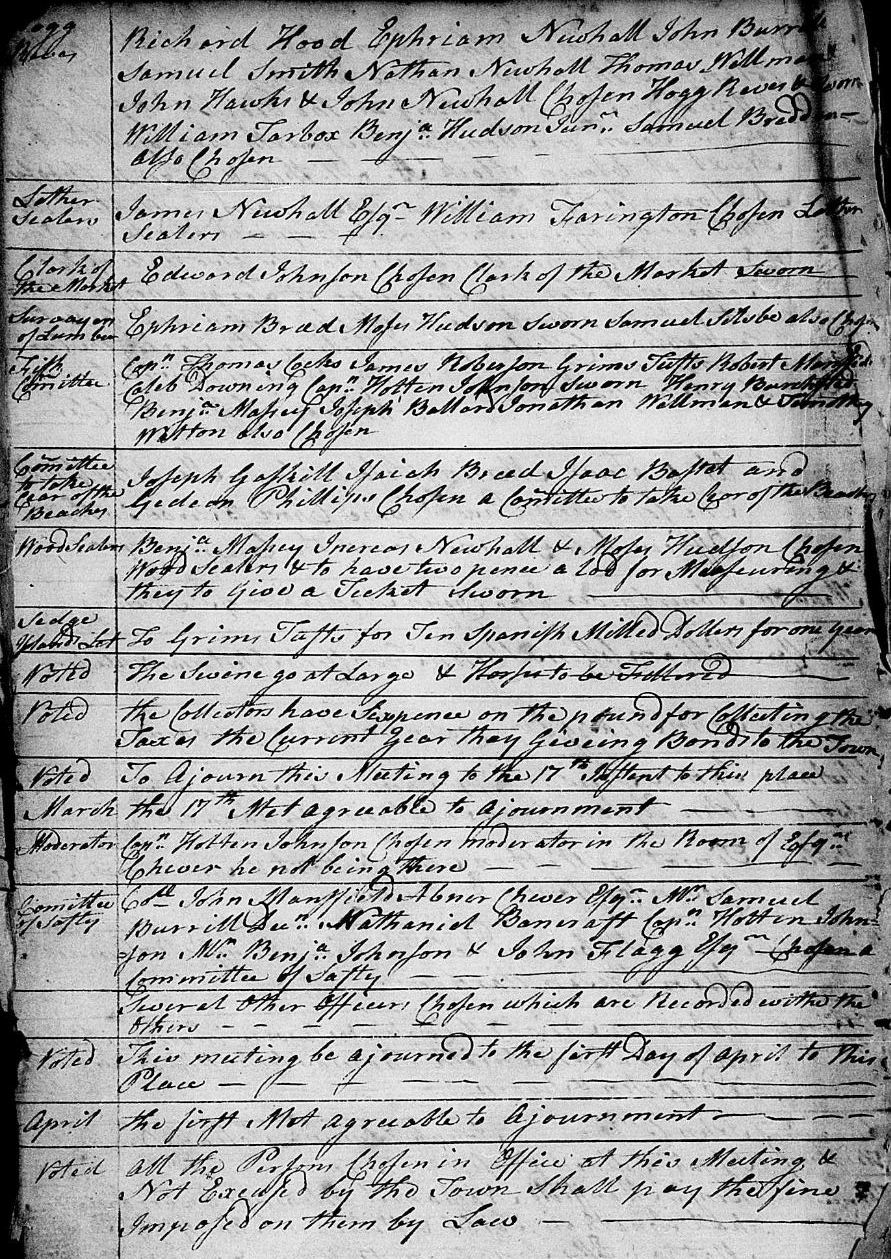 Hogg Reves
Richard Hood Ephriam Newhall John Burrill
Samuel Smith Nathan Newhall Thomas Willman
John Hawks & John Newhall Chosen Hogg Reves & Sworn
William Tarbox Benja. Hudson Junr. Samuel Breeden
also Chosen
Lether Sealers
James Newhall Esqr William Farington Chosen Lether
Sealers
Clark of the Market
Edward Johnson Chosen Clark of the Market Sworn
Survayers of Lumber
Ephriam Breed Moses Hudson Sworn Samuel Silsbe also Chosen
Fish Comittee
Capn. Thomas Cocks James Roberson Grimes Tufts Robert
Caleb Downing Capn. Holten Johnson Sworn Henry
Benja. Massey Joseph Ballard Jonathan Willman & Timothy
Witton also Chosen
Comittee to take Caer of the Beaches
Joseph Gaskill Isaiah Breed Isaac Bastet and
Gedeon Phillips Chosen a Comittee to take Caer of the Beaches
Wood Sealers
Benja. Massey Increas Newhall & Moses Hudson Chosen
Wood Sealers & to have two pence a lod for Measuring &
they to Give a Ticket Sworn
Sedge Island Let
To Grims Tufts for Ten Spanish Milled Dollers for one year
Voted
The Swine go at Large & Horses to be Fettered
Voted
the Collectors have Sixpence on the pound for Collecting the
Taxes the Current Year they Giveing Bonds to the Town
Voted
To Ajourn this Meeting to the 17th Instent to this place
March
the 17th Met agreeable to Ajournment
Moderator
Capn. Holten Johnson Chosen moderator in the Room of Esqr.
Chever he not being there
Comittee of Safty
Coll. John Mansfield Abner Chever Esqr. Mr. Samuel
Burrill Den. Nathaniel Bancraft Capn. Holten John-
son Mr. Benja. Johnson & John Flagg Esqr Chosen a
Committee of Safty
Several Other Officers Chosen which are Recorded withe the
Others
Voted
This meeting be ajourned to the first Day of april to this
Place
April
the first Met agreeable to Ajournment
Voted
all the Persons Chosen in Office at this Meeting &
Not Excused by the Town Shall pay the fine
Imposed on them by Law